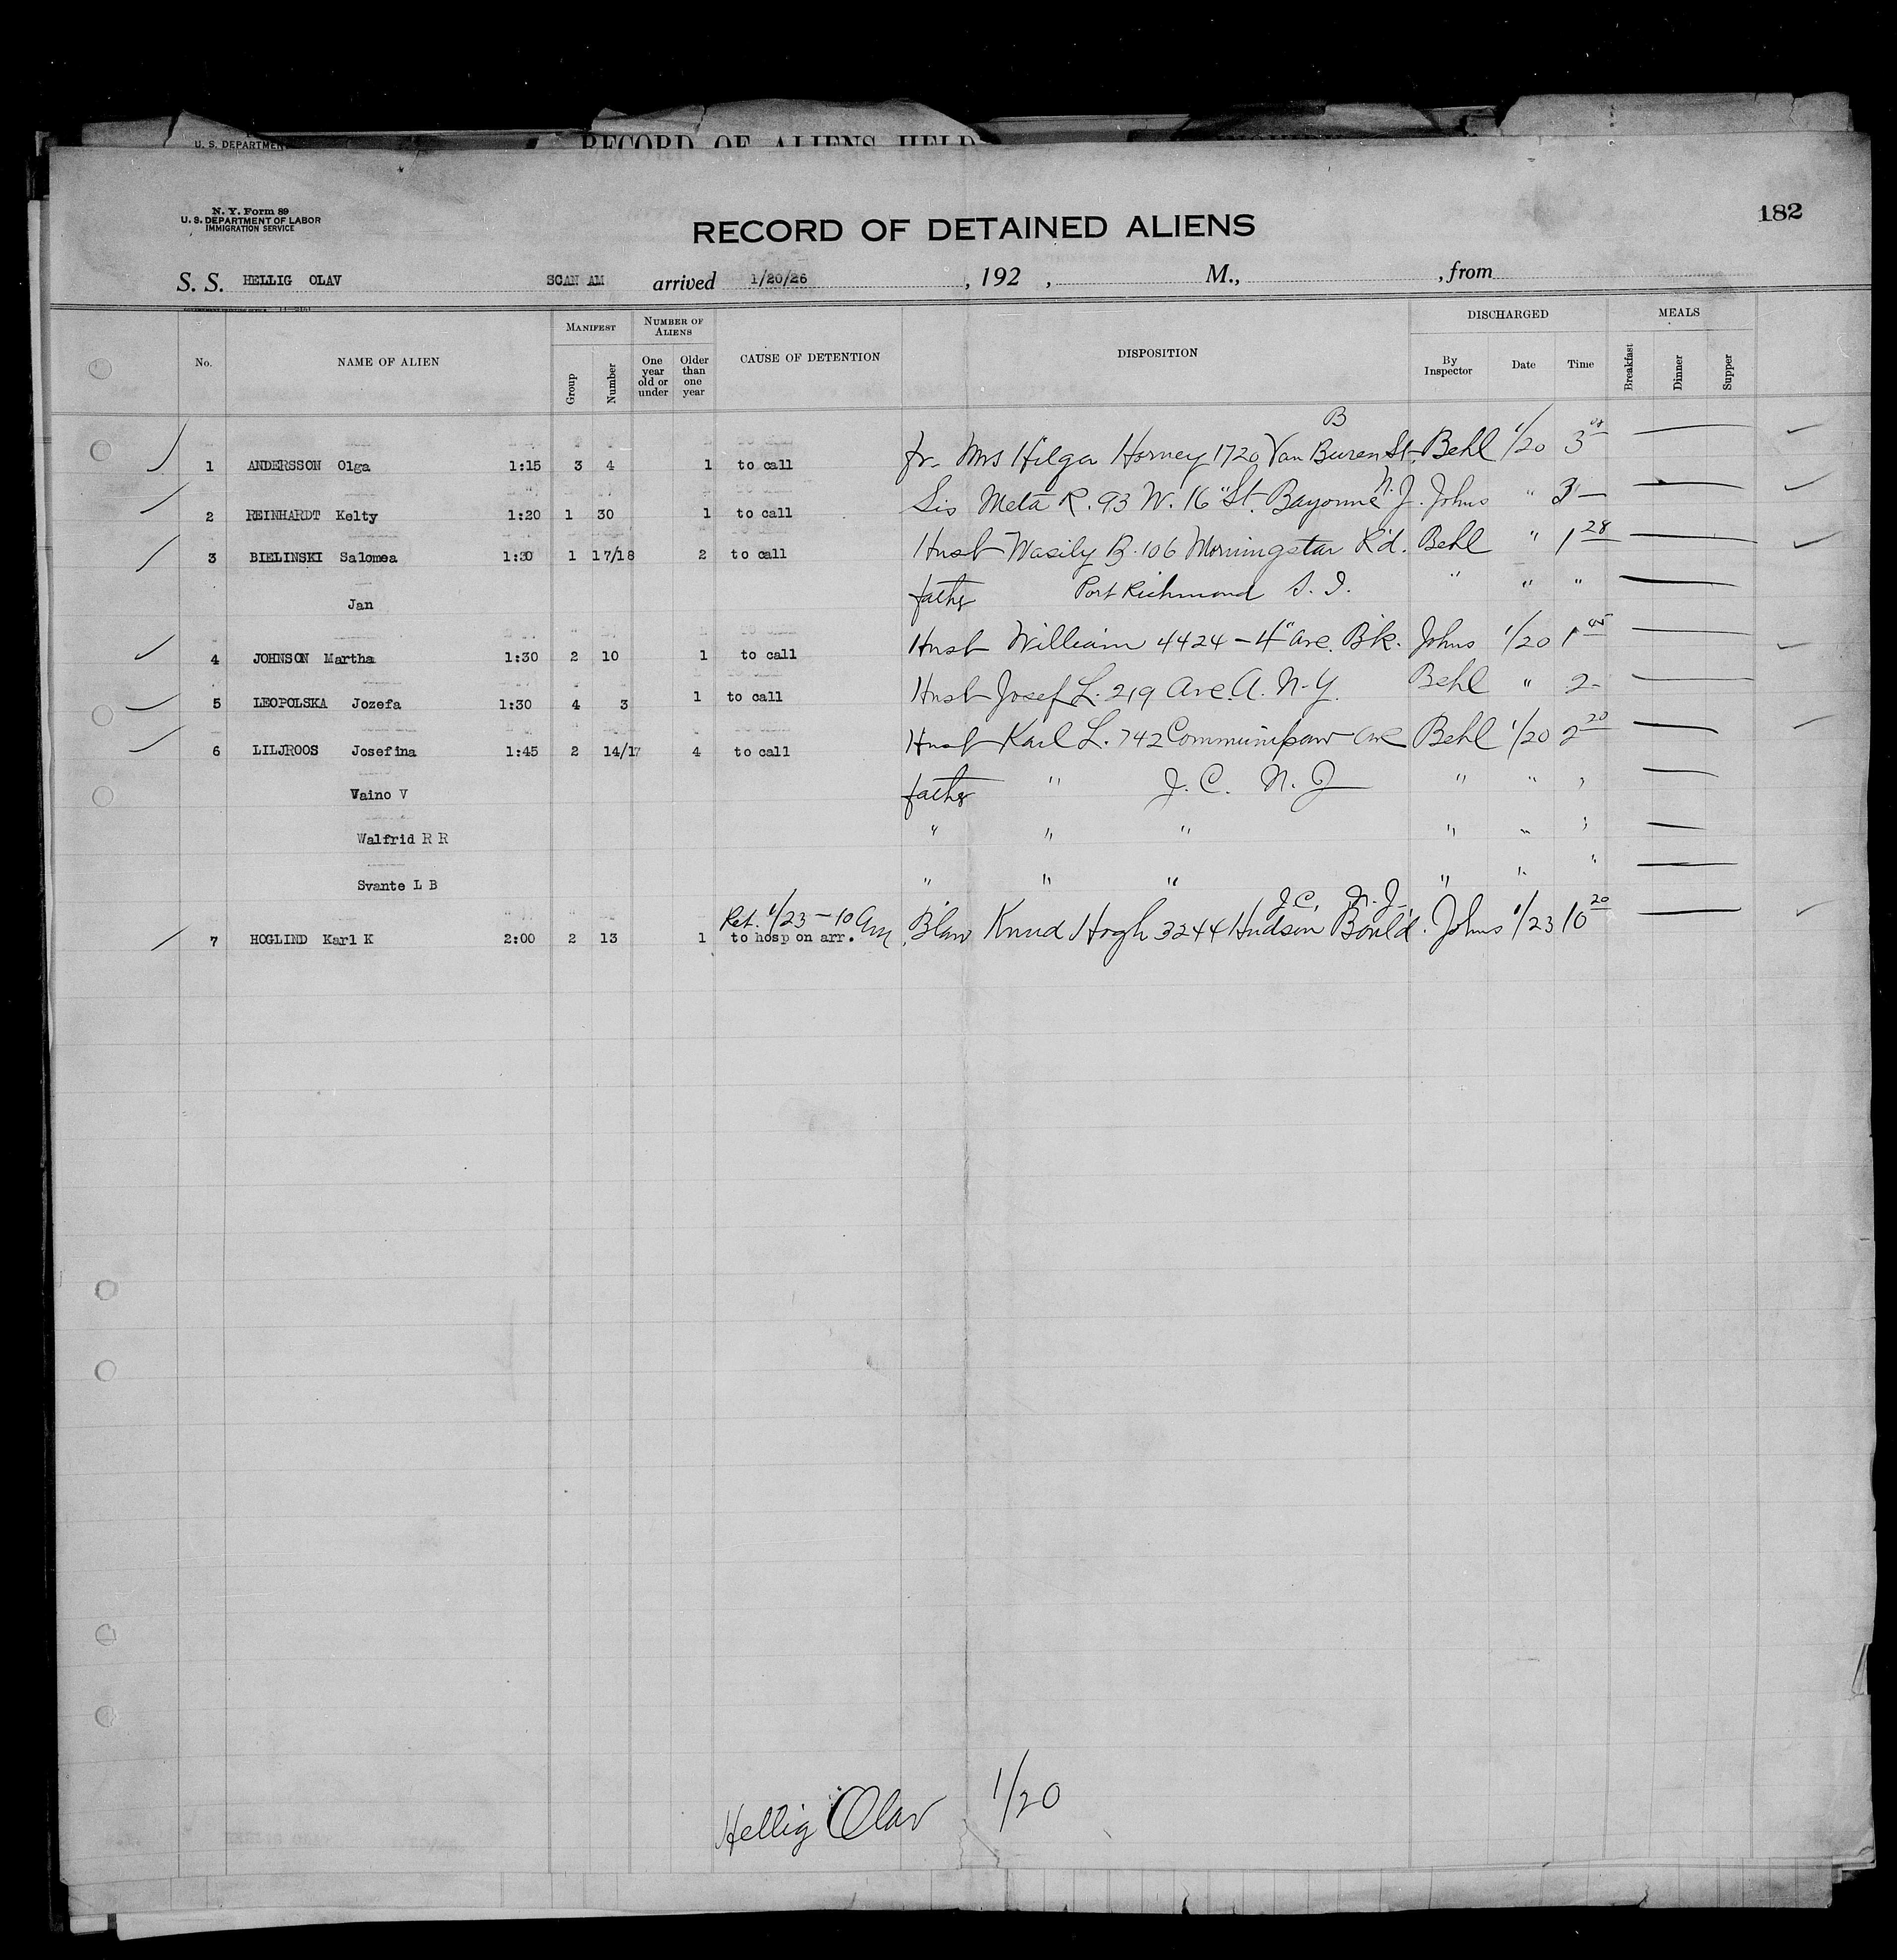 U. S. DEPARTMEN
RECORD OF ALIENS HELD
N. Y. Form 89
U. S. DEPARTMENT OF LABOR
IMMIGRATION SERVICE
182
RECORD OF DETAINED ALIENS
S. S. HELLIG OLAV SCAN AM arrived 1/20/26 , 192 , M., , from
No. NAME OF ALIEN MANIFEST Group Number NUMBER OF ALIENS One year old or under Older than one year CAUSE OF DETENTION DISPOSITION DISCHARGED By Inspector Date Time MEALS Breakfast Dinner Supper
B
1 ANDERSSON Olga 1:15 3 4 1 to call fr. Mrs Hilga Horney 1720 Van Buren St. Behl 1/20 3
2 REINHARDT Kelty 1:20 1 30 1 to call Sis Meta R. 93 W. 16" St. Bayonne N.J. Johns " 3 —
3 BIELINSKI Salomea 1:30 1 17/18 2 to call Husb Wasily B. 106 Morningstar R'd. Behl " 1 28
Jan father Port Richmond S. I. " " "
4 JOHNSON Martha 1:30 2 10 1 to call Husb William 4424 - 4" Ave. B'k. Johns 1/20 1
5 LEOPOLSKA Jozefa 1:30 4 3 1 to call Husb Josef L. 219 Ave. A. N.Y. Behl " 2 -
6 LILJROOS Josefina 1:45 2 14/17 4 to call Husb Karl L. 742 Communipaw Ave Behl 1/20 2 20
Vaino V father " J. C. N. J " " "
Walfrid R R " " " " " "
Svante L B " " " " " "
Ret. 1/23 - 10 am J.C. N.J.
7 HOGLIND Karl K 2:00 2 13 1 to hosp on arr. B'law Knud Hogh 3244 Hudson Boul'd. Johns 1/23 10 20
Hellig Olav 1/20